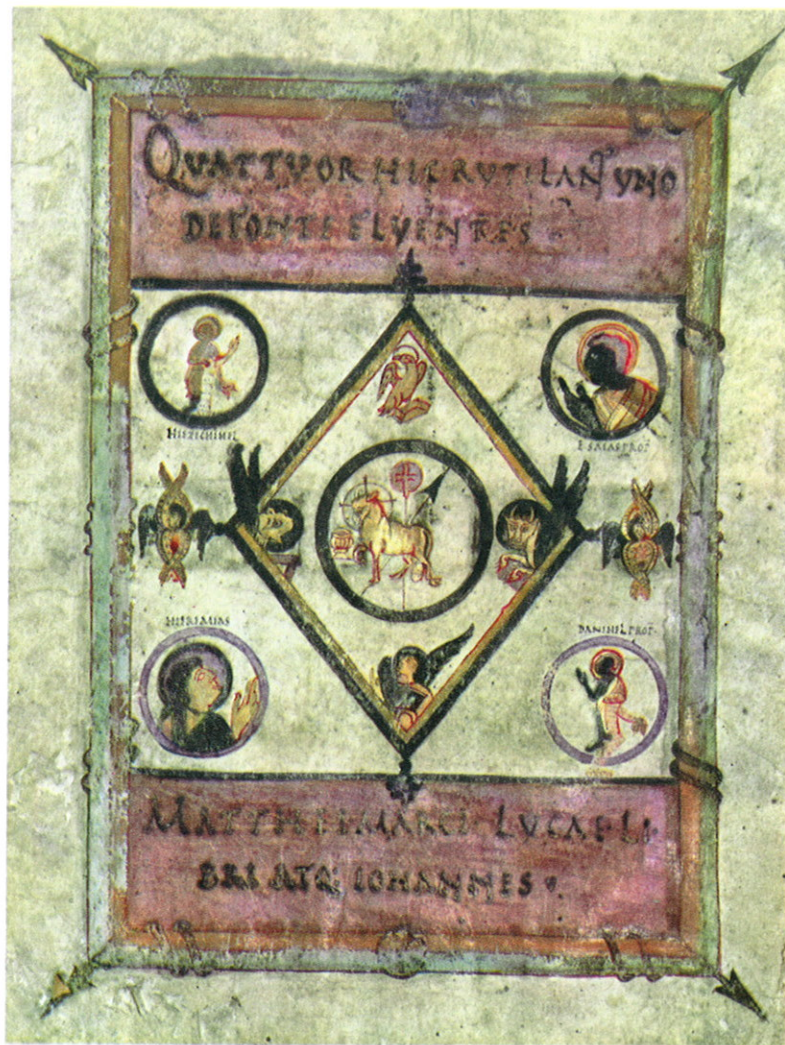 QUATTVOR HIC RVTILANT UNO
DE FONTE FLVENTES
HIEZECHIHEL
ESAIAS PROF
HIEREMIAS
DANIHEL PROF
MATTHEI MARCI LUCAE LI
BRI ATQ: IOHANNES